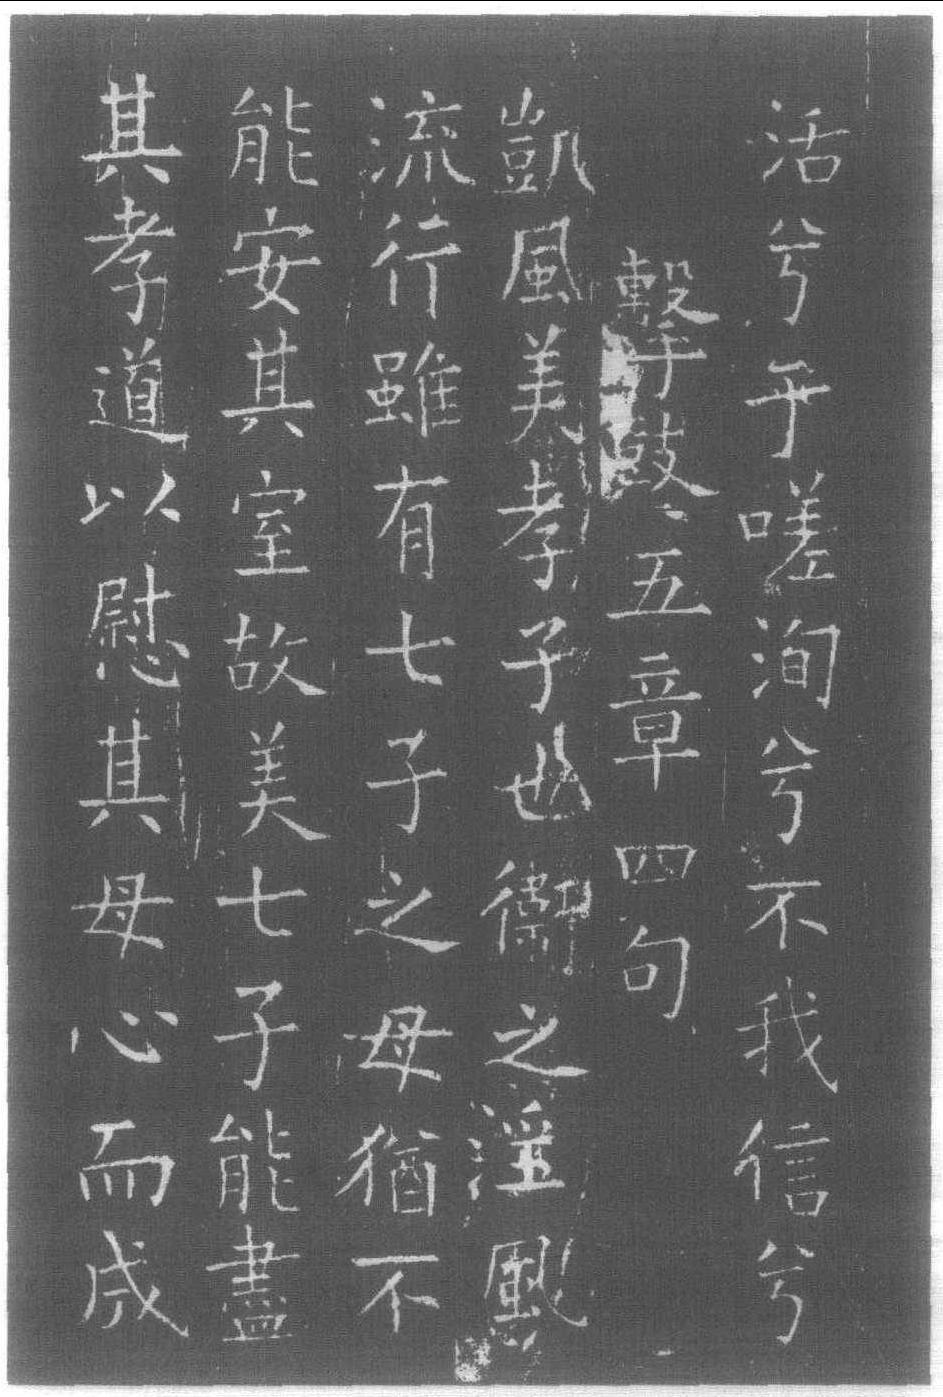 活兮于嗟洵兮不我信兮
擊鼓五章四句
凱風美孝子也衛之淫風
流行雖有七子之母猶不
能安其室故美七子能盡
其孝道以慰其母心而成